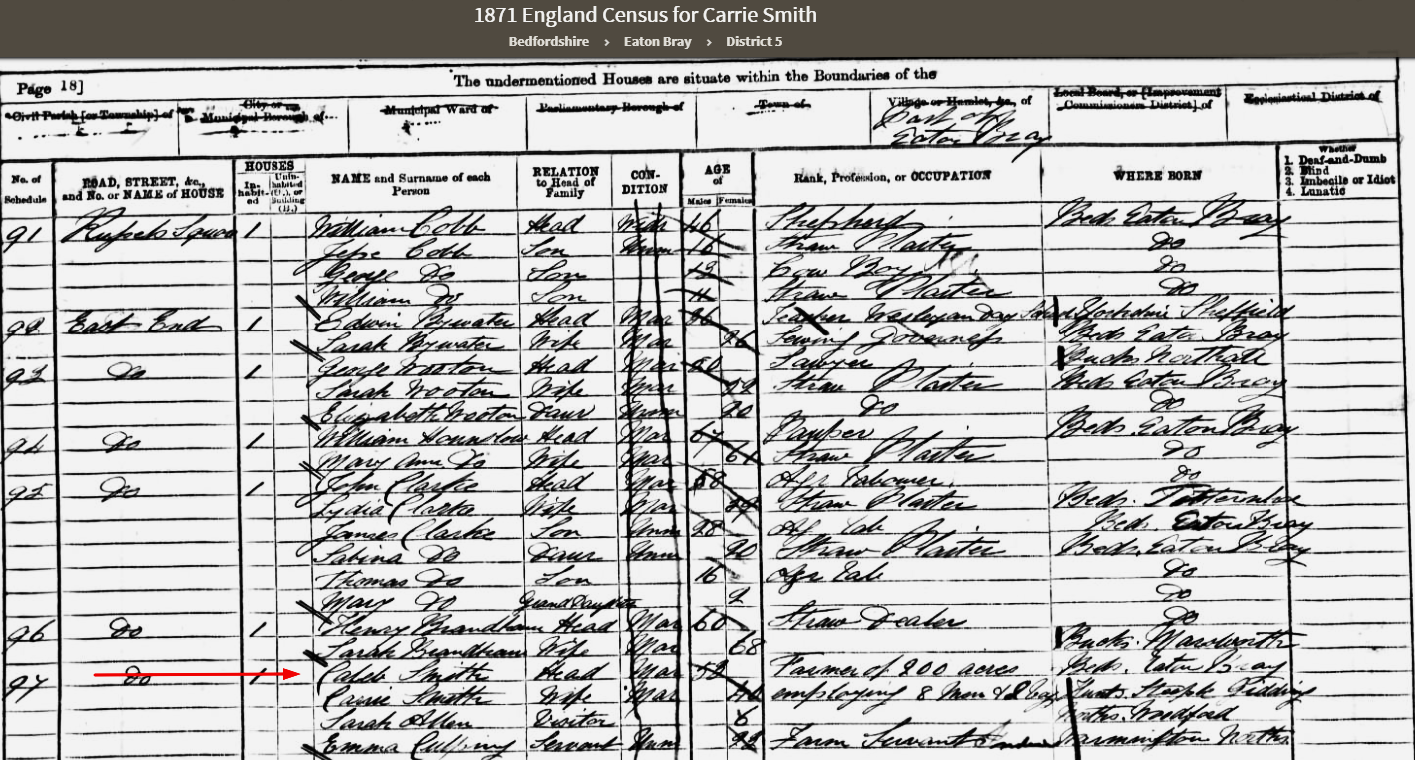 1871 England Census for Carrie Smith
Bedfordshire > Eaton Bray > District 5
Page 18] The undermentioned Houses are situate within the Boundaries of the
Civil Parish [or Township] of City or Municipal Borough of Municipal Ward of Parliamentary Borough of Town of Village or Hamlet, &c., of Local Board, or [Improvement Commissioners District] of Ecclesiastical District of
Part of
Eaton Bray
No. of Schedule ROAD, STREET, &c., and No. or NAME of HOUSE HOUSES Inhabited Uninhabited (U.), or Building (B.) NAME and Surname of each Person RELATION to Head of Family CONDITION AGE of Males Females Rank, Profession, or OCCUPATION WHERE BORN Whether 1. Deaf-and-Dumb 2. Blind 3. Imbecile or Idiot 4. Lunatic
91 1 William Cobb Head 46 Shepherd Beds Eaton Bray
Jesse Cobb Son Unm 16 Straw Plaiter Do
George Do Son 12 Cow Boy Do
William Do Son 11 Straw Plaiter Do
92 East End 1 Edwin Bywater Head Mar 36 Teacher Wesleyan Day Yorkshire Sheffield
Sarah Bywater Wife Mar 36 Sewing Governess Beds Eaton Bray
93 Do 1 George Wooton Head Mar Bucks Northall
Sarah Wooton Wife Mar Straw Plaiter Beds Eaton Bray
Elizabeth Wooton Daur Unm 20 Do Do
94 Do 1 William Hounslow Head Mar 67 Pauper Beds Eaton Bray
Mary Ann Do Wife Mar 61 Straw Plaiter Do
95 Do 1 John Clarke Head Mar 58 Agr Labourer Do
Lydia Clarke Wife Mar Straw Plaiter Beds.
James Clarke Son Unm 28 Ag Lab Beds. Eaton Bray
Sabina Do Daur Unm 20 Straw Plaiter Beds. Eaton Bray
Thomas Do Son 16 Agr Lab Do
Mary Do Grand Daughter 2 Do
96 Do 1 Henry Brandham Head Mar 60 Straw Dealer Do
Sarah Brandham Wife Mar 68 Bucks. Marsworth
97 Do 1 Caleb Smith Head Mar 52 Farmer of 200 acres Beds. Eaton Bray
Carrie Smith Wife Mar 40 employing 8 Men & Hunts. Steeple Gidding
Sarah Allen Visitor 6 Woodford
Emma Servant Unm 22 Farm Servant Warmington Norths.